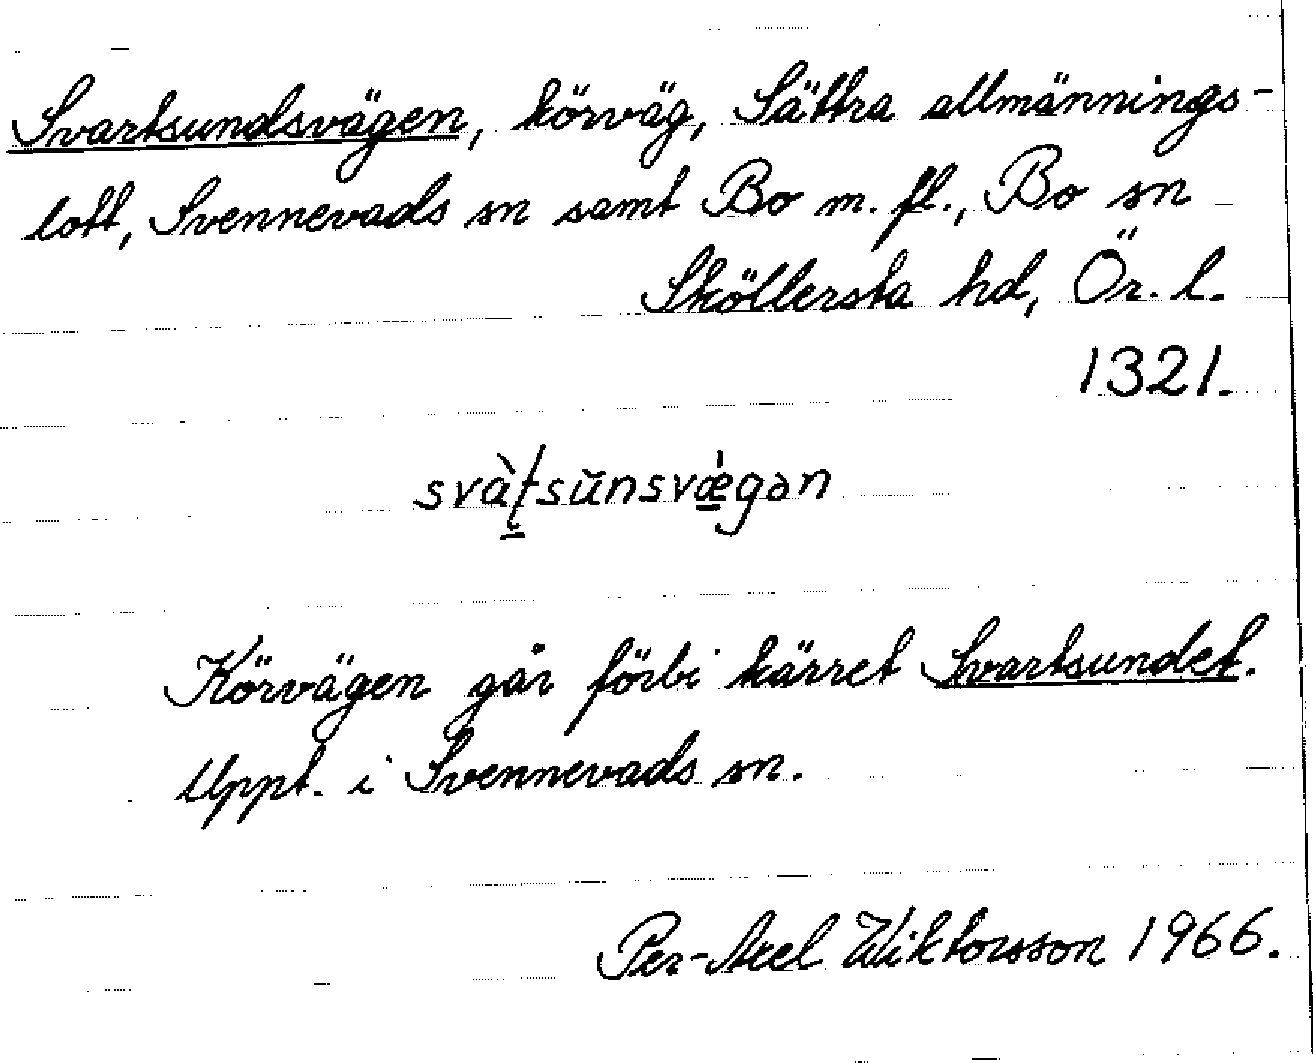 Svartsundsvägen, körväg, Sättra allmännings-
lott, Svennevads sn samt Bo m. fl., Bo sn
Sköllersta hd, Ör. l.
1321.
svàʈsŭnsvæ̀gən
Körvägen går förbi kärret Svartsundet.
Uppt. i Svennevads sn.
Per-Axel Wiktorsson 1966.